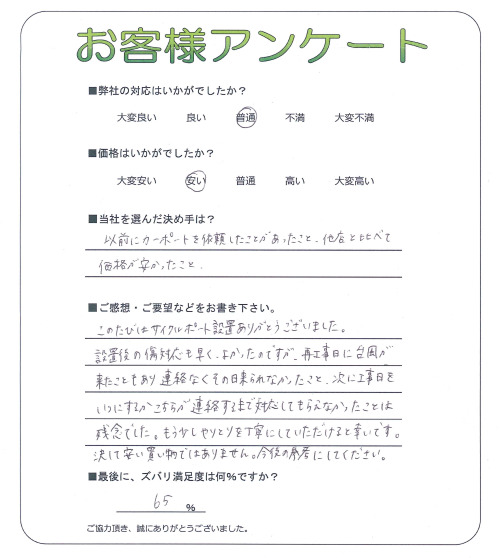 お客様アンケート
■弊社の対応はいかがでしたか？
大変良い 良い 普通 不満 大変不満
■価格はいかがでしたか？
大変安い 安い 普通 高い 大変高い
■当社を選んだ決め手は？
以前にカーポートを依頼したことがあったこと、他店と比べて
価格が安かったこと、
■ご感想・ご要望などをお書き下さい。
このたびはサイクルポート設置ありがとうございました。
設置後の傷対応も早く、よかったのですが、再工事日に台風が
来たこともあり連絡なくその日来られなかったこと、次に工事日を
いつにするかこちらが連絡するまで対応してもらえなかったことは
残念でした。もう少しやりとりを丁寧にしていただけると幸いです。
決して安い買い物ではありません。今後の参考にしてください。
■最後に、ズバリ満足度は何%ですか？
65 %
ご協力頂き、誠にありがとうございました。